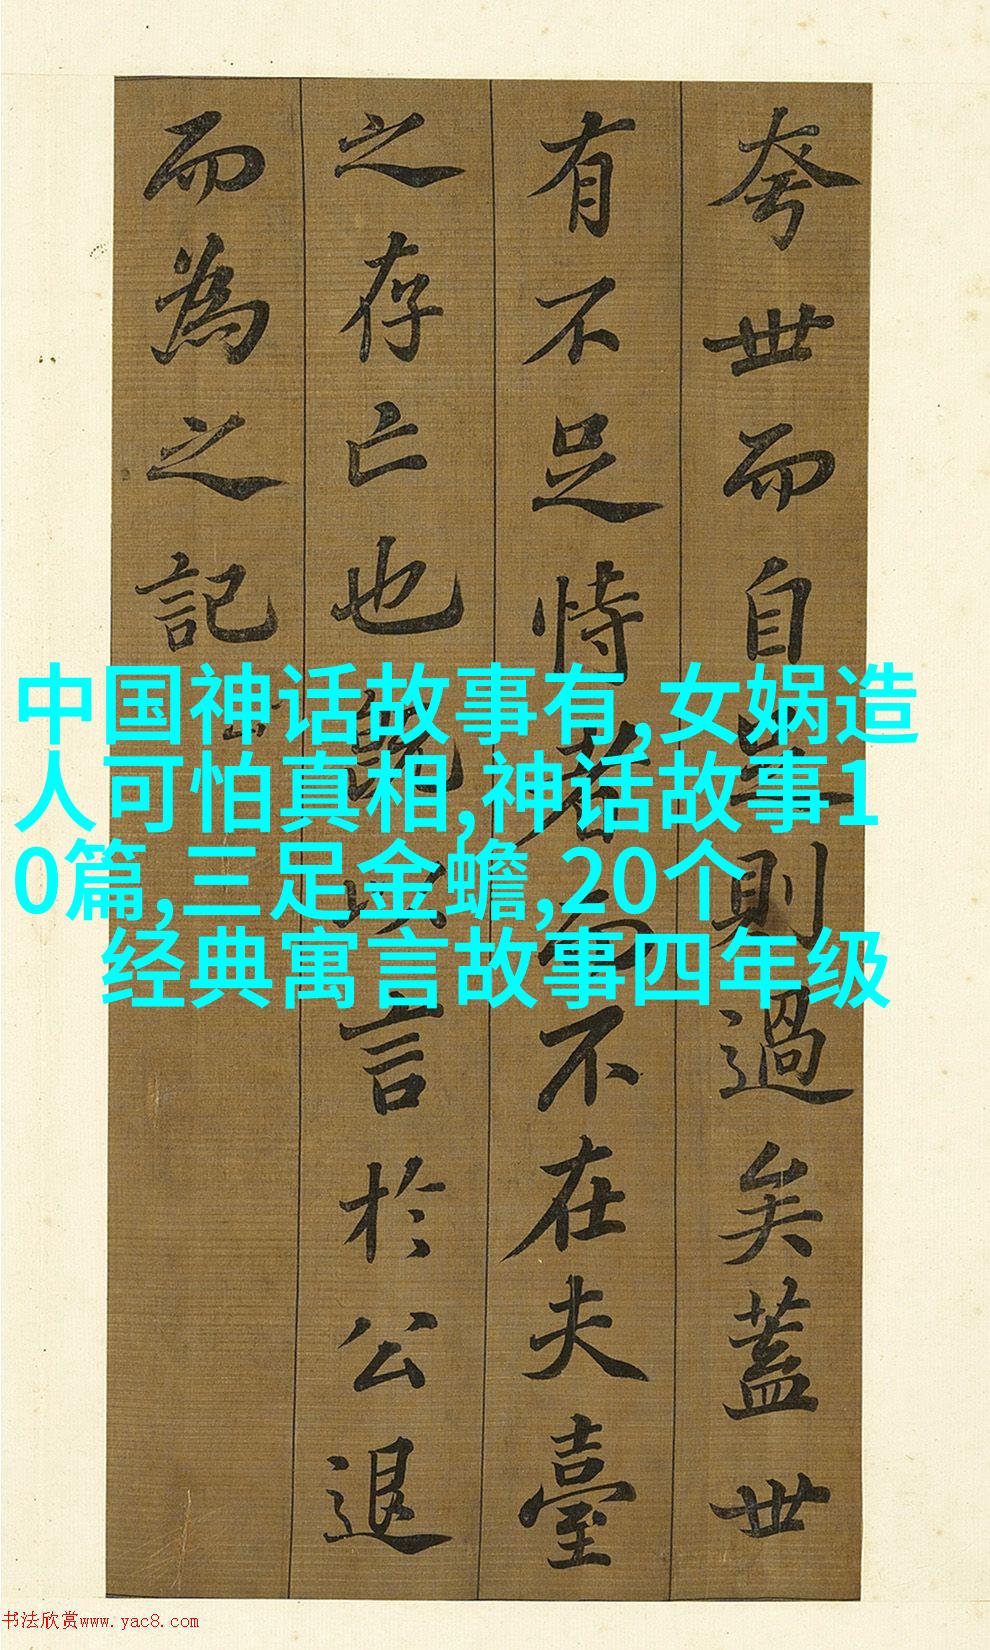 夸世而自足則過矣蓋世
有不足恃者而不在夫臺
之存亡也既以言於公退
而為之記
中国神话故事有,女娲造
人可怕真相,神话故事1
0篇,三足金蟾,20个
经典寓言故事四年级
书法欣赏www.yac8.com